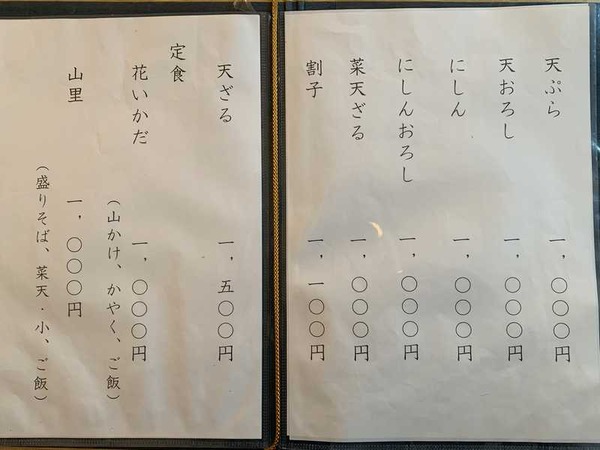 天ぷら 一，〇〇〇円
天おろし 一，〇〇〇円
にしん 一，〇〇〇円
にしんおろし 一，〇〇〇円
菜天ざる 一，〇〇〇円
割子 一，一〇〇円
天ざる 一，五〇〇円
定食
花いかだ 一，〇〇〇円
（山かけ、かやく、ご飯）
山里 一，〇〇〇円
（盛りそば、菜天・小、ご飯）